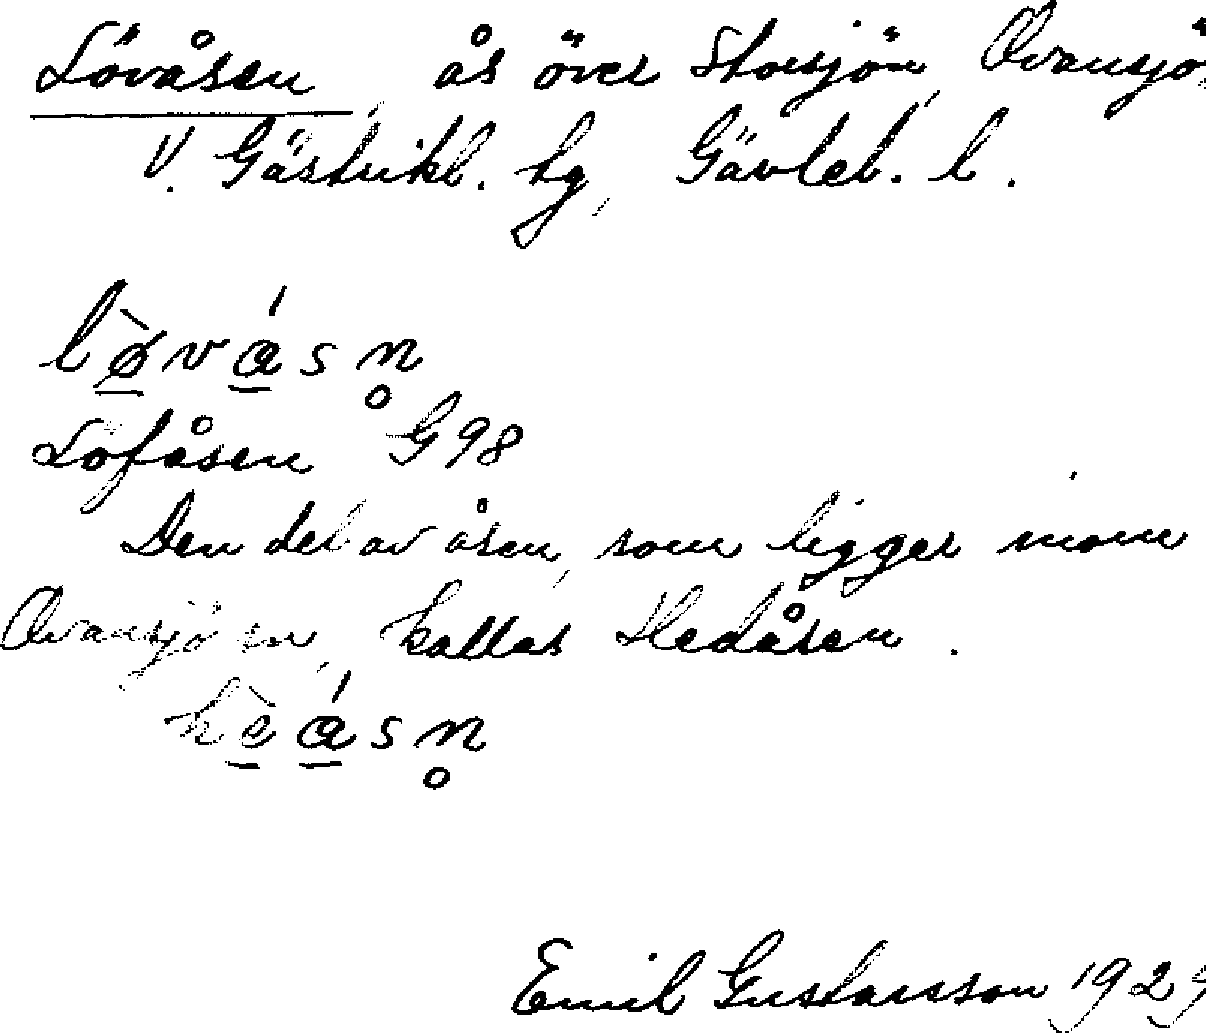 Lövåsen, ås över Storsjön, Ovansjö
V. Gästrikl. tg, Gävleb. l.
lø̀vás n̥
Löfåsen G98
Den del av åsen, som ligger inom
Ovansjö sn, kallas Hedåsen.
hèás n̥
Emil Gustavsson 1929